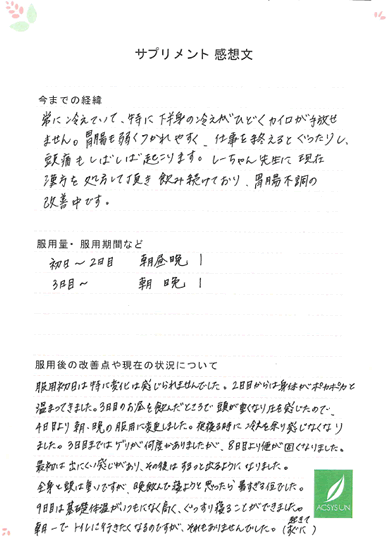 サプリメント 感想文
今までの経緯
常に冷えていて、特に下半身の冷えがひどくカイロが手放せ
ません。胃腸も弱くつかれやすく、仕事を終えるとぐったりし、
頭痛もしばしば起こります。しーちゃん先生に現在
漢方を処方して頂き飲み続けており、胃腸不調の
改善中です。
服用量・服用期間など
初日～2日目 朝昼晩 1
3日目～ 朝 晩 1
服用後の改善点や現在の状況について
服用初日は特に変化は感じられませんでした。2日目からは身体がポカポカと
温まってきました。3日目のお昼を飲んだところで頭が重くなり圧を感じたので、
4日目より朝・晩の服用に変更しました。夜寝る時に冷えを余り感じなくなり
ました。3日目まではゲリが何度かありましたが、8日目より便が固くなりました。
最初は出にくい感じがあり、その後はするっと出るようになりました。
全身と頭は重いですが、晩飲んで寝ようと思ったら暑すぎる位でした。
9日目は基礎体温がいつもになく高く、ぐっすり寝ることができました。
朝一でトイレに行きたくなるのですが、それもありませんでした。(起きてすぐに)
ACSYS UN